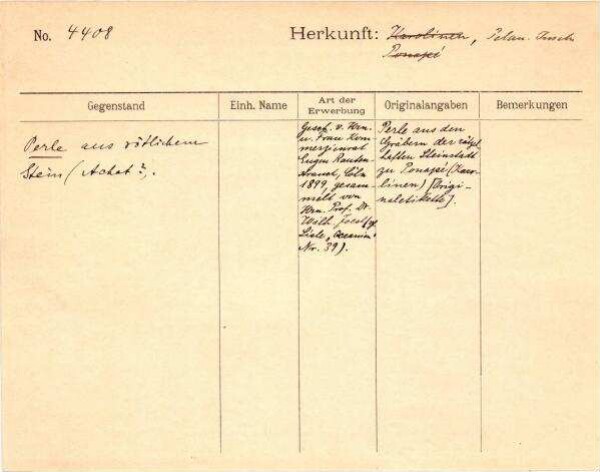 No. 4408
Herkunft: Karolinen, Pelau-Inseln
Ponapé
Gegenstand
Einh. Name
Art der
Erwerbung
Originalangaben
Bemerkungen
Perle aus rötlichem
Stein (Achat?).
Gesch. v. Hrn.
u. Frau Kom-
merzienrat
Eugen Rauten-
strauch, Cöln
1899, gesam-
melt von
Hrn. Prof. Dr.
Wilh. Joest (
Liste,
Nr. 39).
Perle aus den
Gräbern der rätsel-
haften Steinstadt
zu Ponapé (Karo-
linen) [Origi-
naletikette].